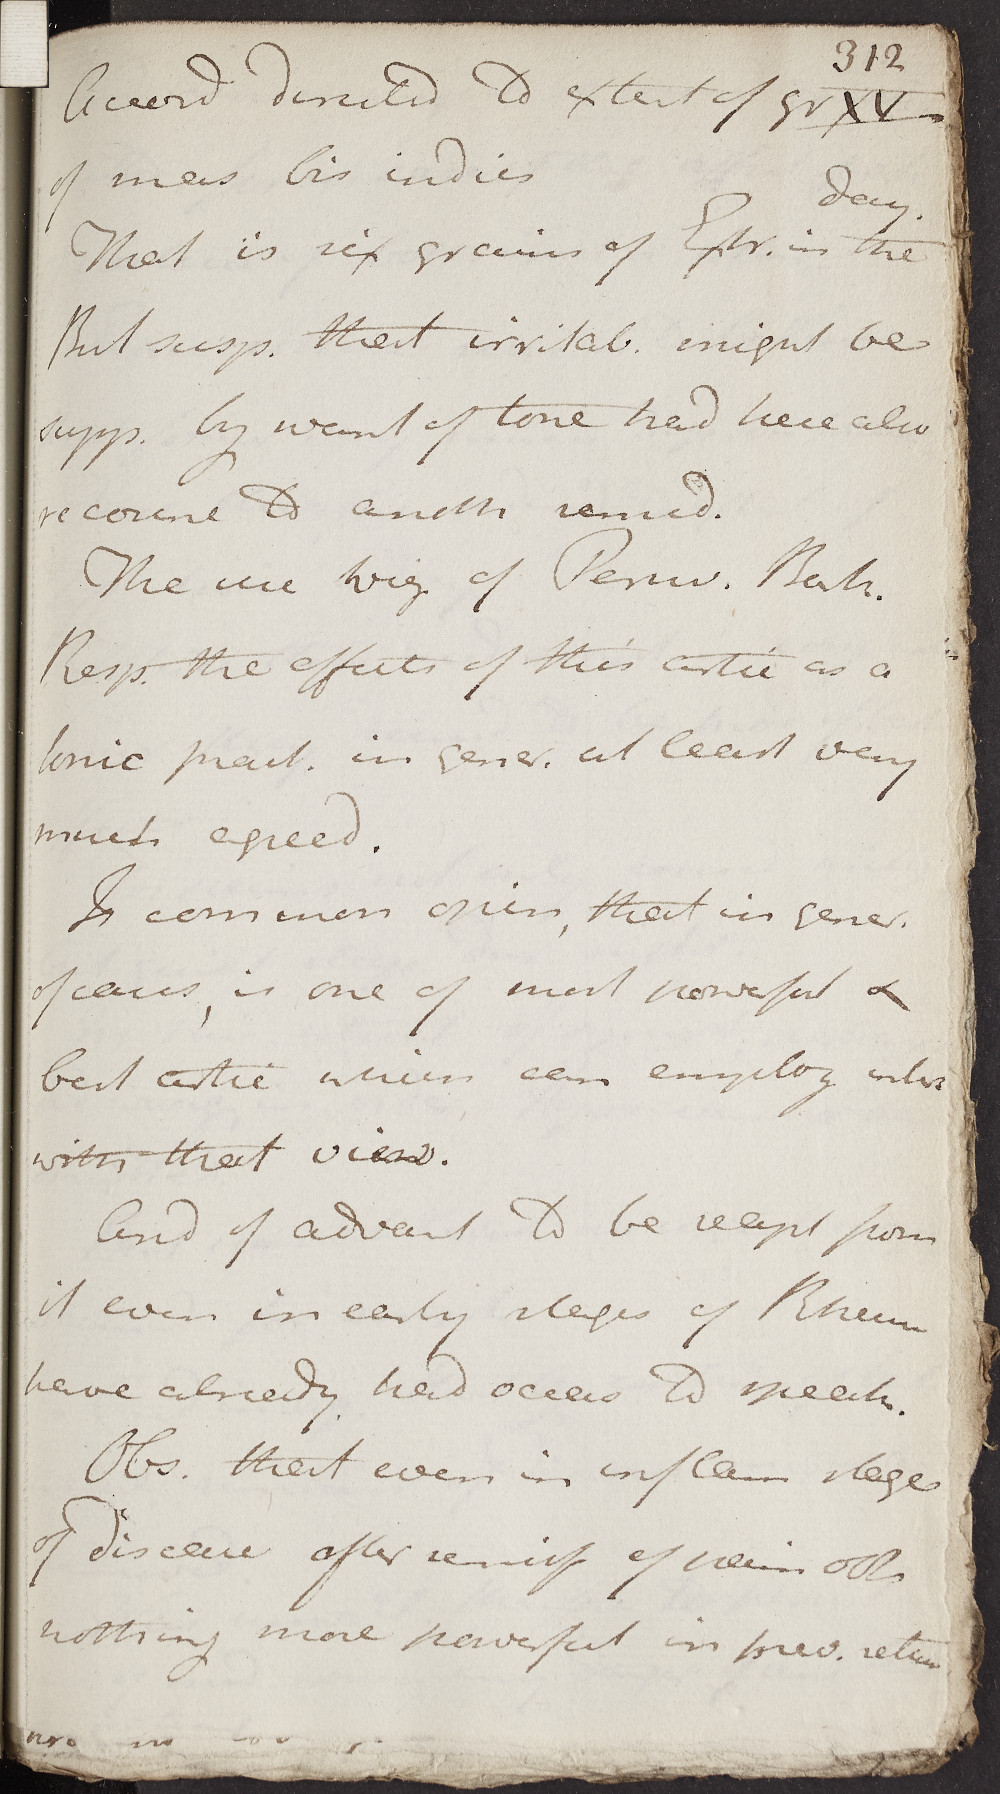 312
Accord directed to extent of gr XV
of mass bis indies
day.
That is six grains of Extr. in the
But susp. that irritab. might be
supp. by want of tone had here also
recourse to anoth remed.
The use viz of Peruv. Bark.
Resp. the effects of this artic as a
tonic pract. in gener. at least very
much agreed.
Is common opin, that in gener.
of cases, is one of most powerful &
best artic which can employ
with that view.
And of advant to be reapt from
it even in early stages of Rheum
have already had occas to speak.
Obs. that even in inflam stages
of disease after remiss of pain oft
nothing more powerful in prev. return